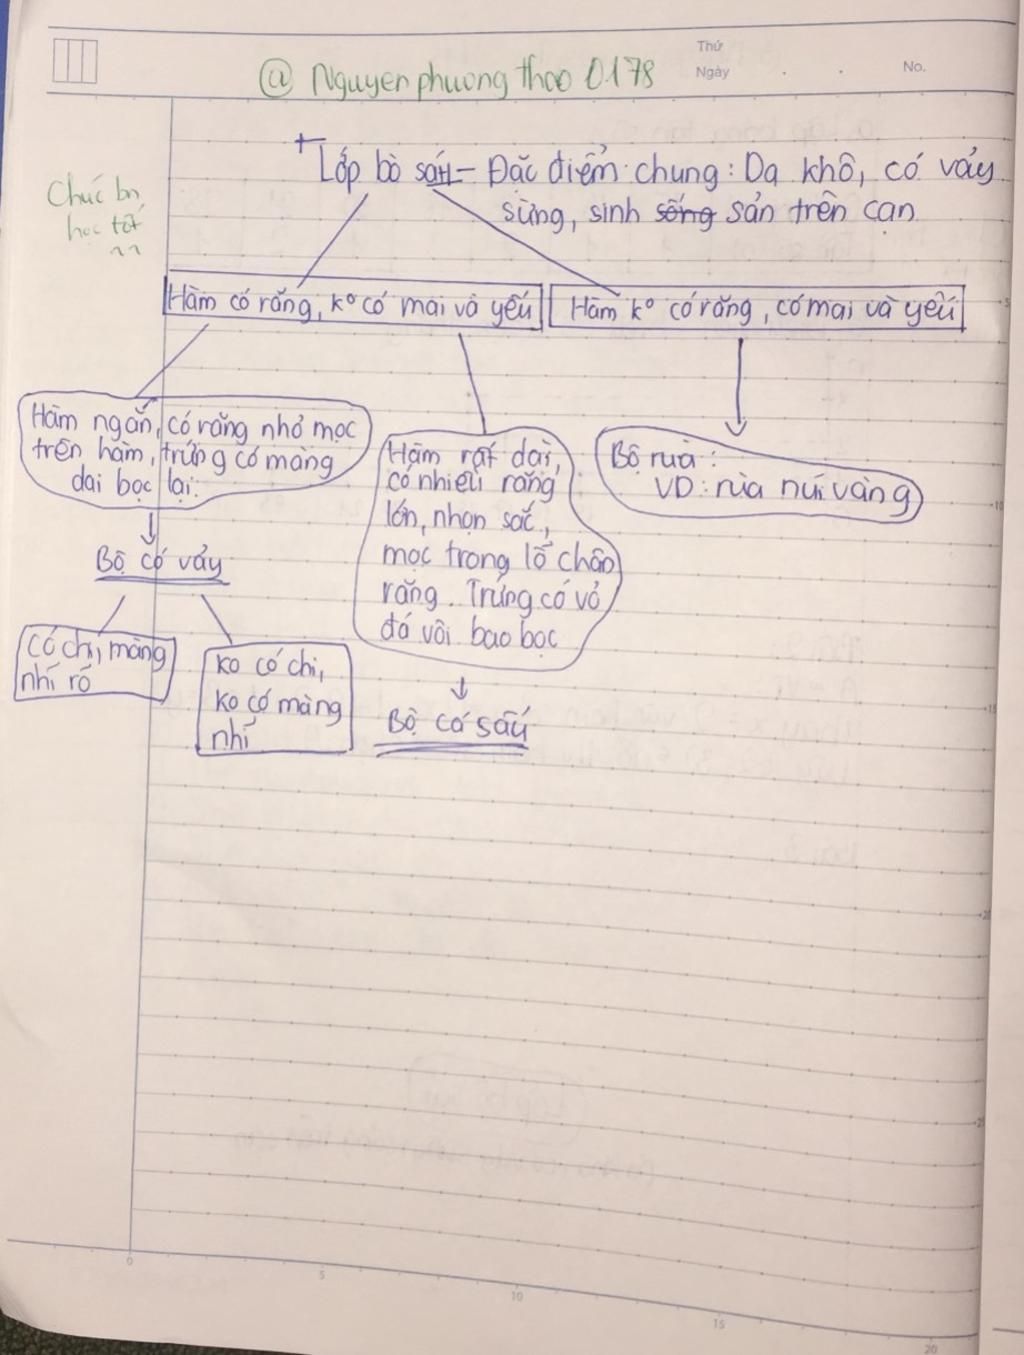 Thứ
Ngày . . No.
@ Nguyenphuongthao0178
Chúc bn
học tốt
^^
+ Lớp bò sát - Đặc điểm chung: Da khô, có vảy
sừng, sinh sống sản trên cạn
Hàm có răng, kº có mai và yếu
Hàm kº có răng, có mai và yếu
Hàm ngắn, có răng nhỏ mọc
trên hàm, trứng có màng
dai bọc lại.
Bộ có vảy
có chi, màng
nhí rõ
ko có chi,
ko có màng
nhí
Hàm rất dài,
có nhiều răng
lớn, nhọn sắc,
mọc trong lỗ chân
răng. Trứng có vỏ
đá vôi bao bọc
Bộ cá sấu
Bộ rùa:
VD: rùa núi vàng
5
10
15
20
25
0
5
10
15
20